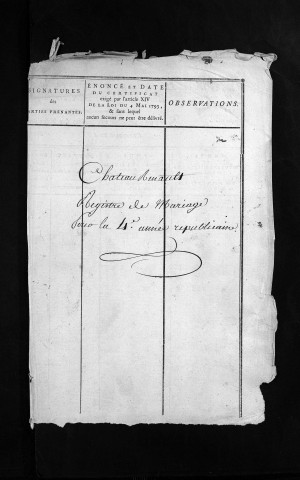 SIGNATURES
des
PARTIES PRENANTES.
ÉNONCÉ ET DATE
DU CERTIFICAT
exigé par l'article XIV
DE LA LOI DU 4 MAI 1793,
& sans lequel
aucun secours ne peut être délivré.
OBSERVATIONS.
Chateau Renault
Registre de Mariage
pour la 4e. année republicaine